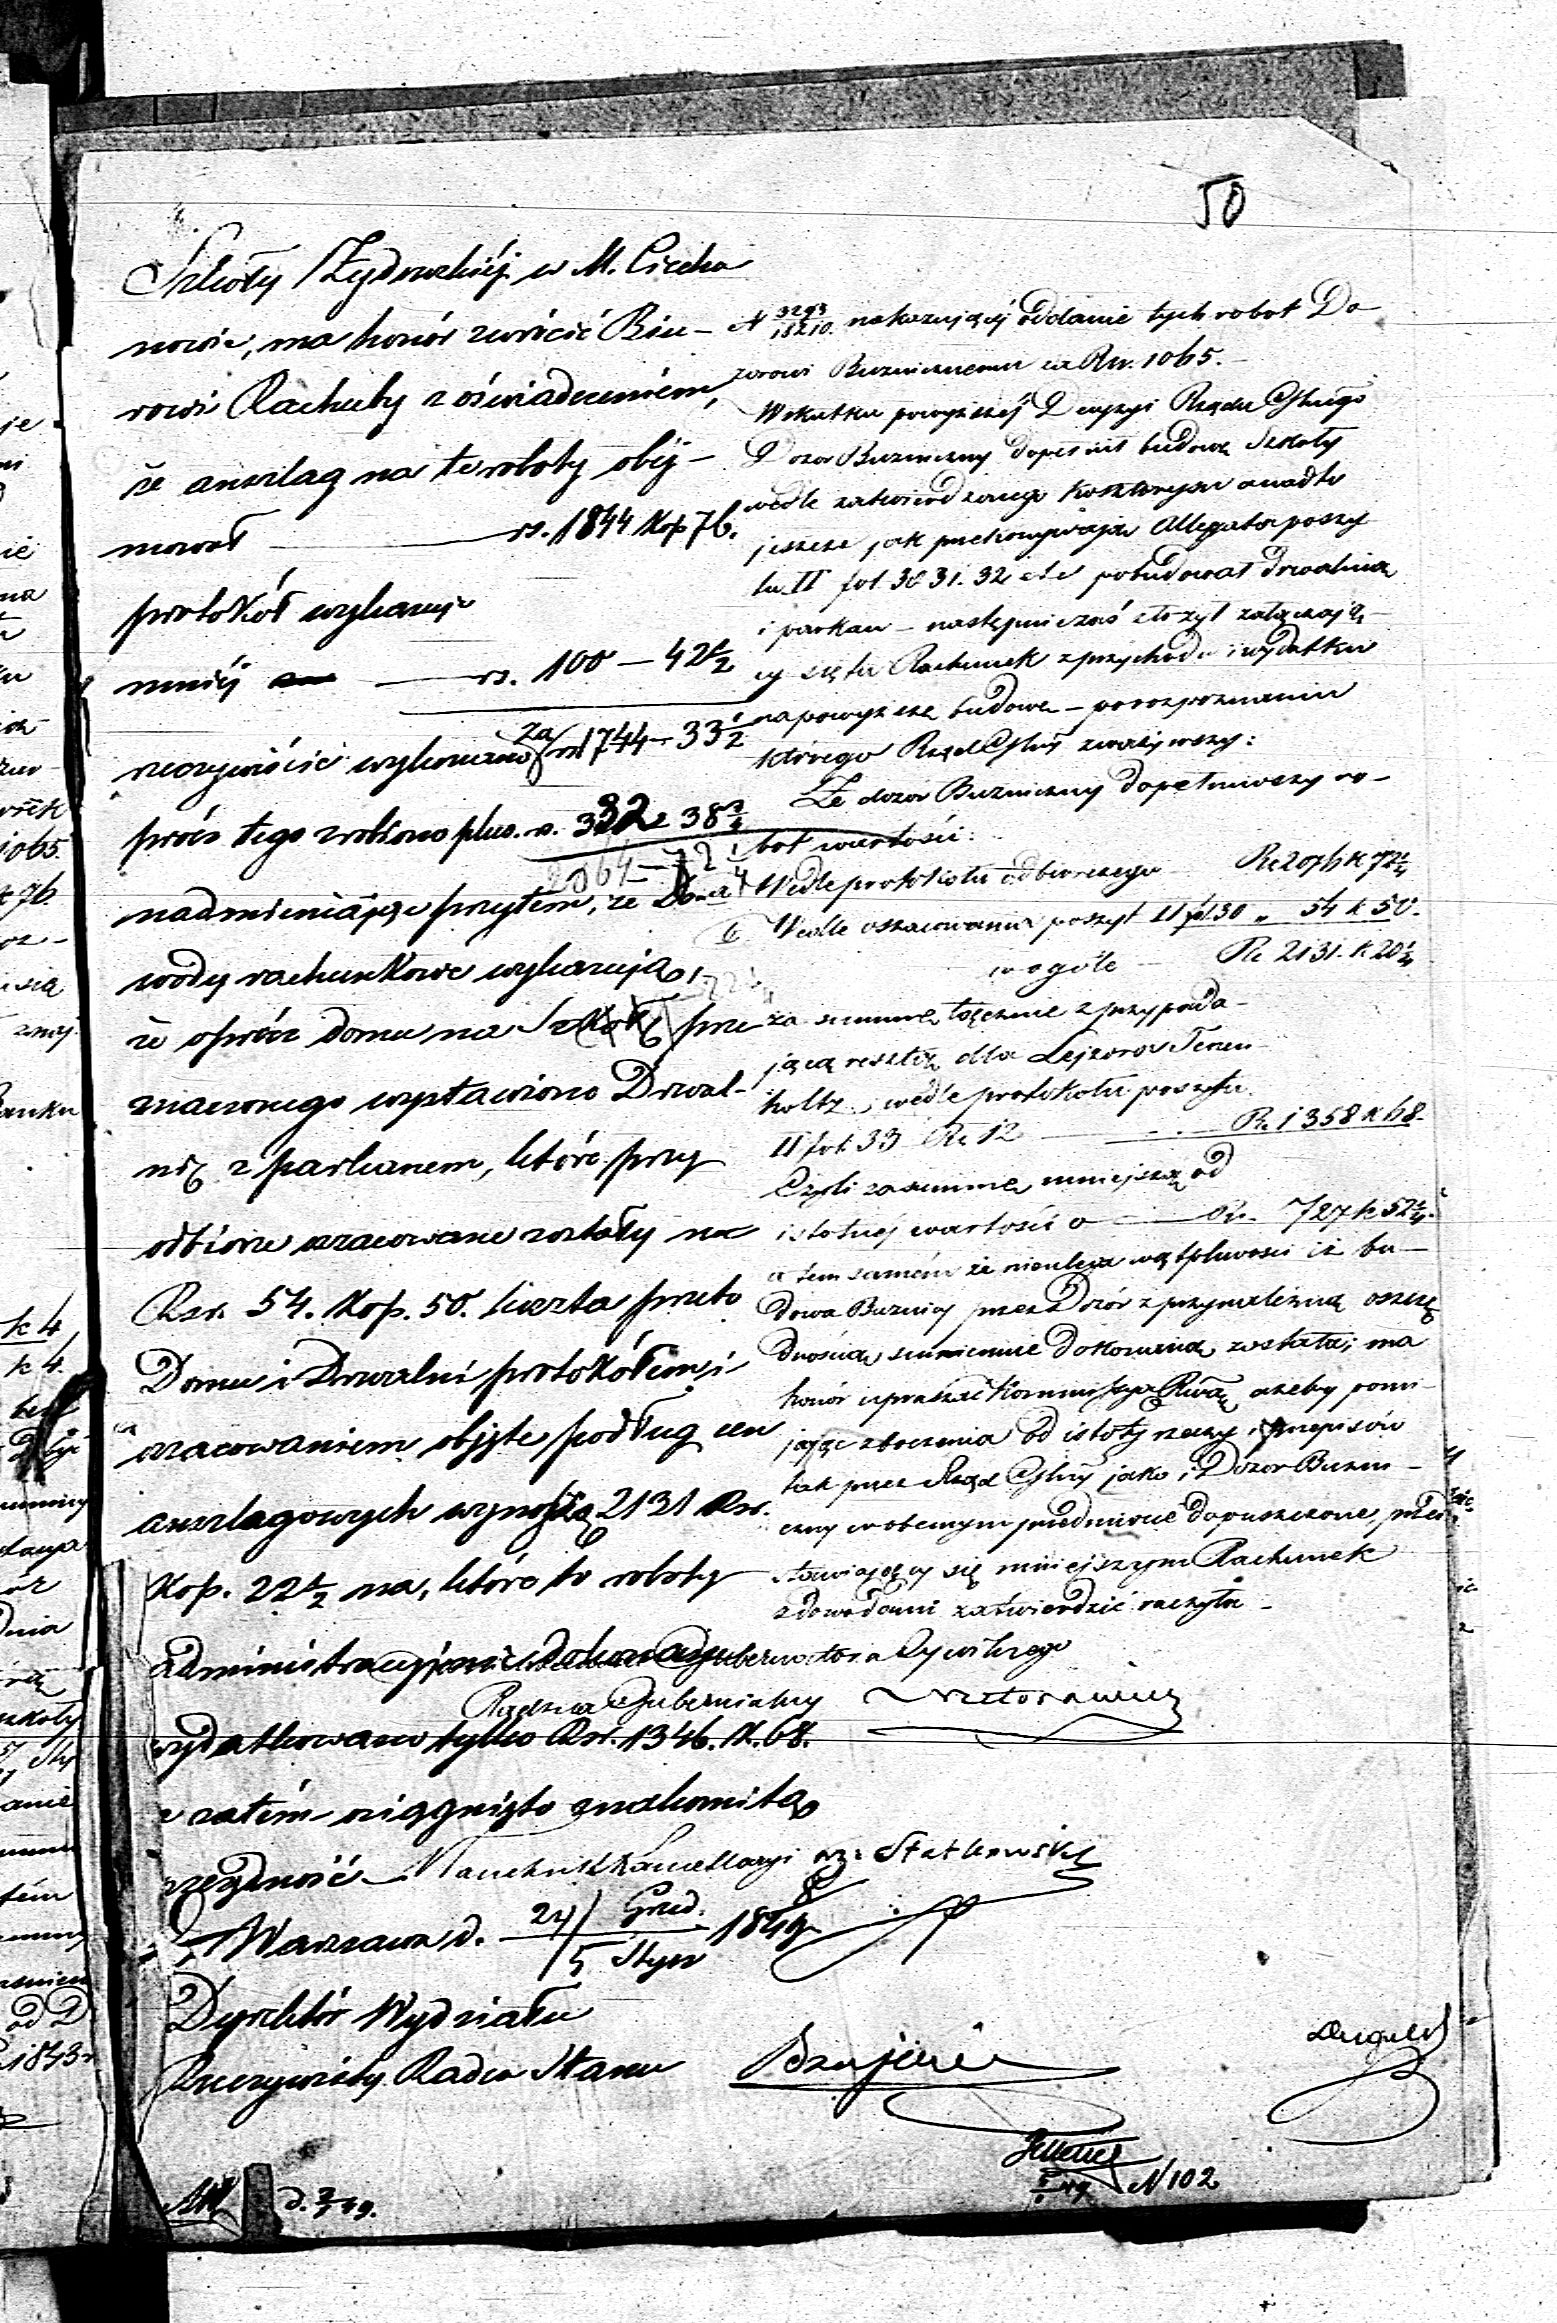 50
Szkoły Żydowskiéj w M. Ciecha
nowie, ma honór zwrócić Biu-
rowi Rachuby z oświadczeniem,
że anszlag na te roboty obéj-
mował rs. 1844 kop 76.
protokół wykazuje
mniéj rs. 100 — 42½
rzeczywiście wykonano za rs 1744 — 33½
prócz tego zrobiono plus. rs. 332 38¾
2064 — 72¼
nadmieniając przytém, że Do-
wody rachunkowe wykazują,
że oprócz domu na Szkołę prze
znaczonego wystawiono Drwal-
nię z parkanem, które przy
odbiorze szacowane zostały na
Rsr. 54. Kop. 50. liczta przeto
Domu i Drwalni protokółem i
szacowaniem objęte podług cen
anszlagowych wynoszą 2131 Rsr.
Kop. 22½ na, które to roboty
administracyjnie dokonane
wydatkowano tylko Rsr. 1346. K. 68.
a zatém osiągnięto znakomitą
oszczędność
Warszawa d. 24/5 Grud./Stycz 1849
Dyrektór Wydziału
Rzeczywisty Radca Stanu
N 3293/18210. nakazującéj oddanie tych robot Do-
zorowi Bużnicznemu za Rsr. 1065.—
Wskutku powyższéj Decyzyi Rządu Głnego
Dozor Bużniczny dopełnił budowę Szkoły
wedle zatwierdzonego kosztorysu a nadto
jeszcze jak przekonywają Allegata poszy
tu II fol 30 31. 32 etc pobudował drwalnią
i parkan — następnie zaś złożył załączają-
cy się tu Rachunek z przychodu i wydatku
na powyższą budowę — po rozpoznaniu
którego Rząd Głny zważywszy:
Że dozor Bużniczny dopełniwszy ro-
bot wartości:
Wedle protokołu odbiorczego Rs 2076 k 72¼
Wedle oszacowania poszyt II fol 30 „ 54 k 50.
w ogóle — Rs 2131. k 20¼
za summę łącznie z przypada-
jącą resztą dla Lejzora Tenen-
holtz, wedle protokołu poszytu
II fol. 33 Rs 12 — Rs 1358 k 68.
Czyli za summę mniejszą od
istotnej wartości o — Rs. 727 k 52¼
a tem samém że nieulega wątpliwości iż bu-
dowa Bużnicy przez Dozór z przynależną oszczę
dnością sumiennie dokonaną została; ma
honór upraszać Kommissyą Rząą ażeby pomi-
jając zboczenia od istoty rzeczy i przepisów
tak przez Rząd Głny jako i Dozor Bużni-
czny w obecnym przedmiocie dopuszczone, przed
stawiający się niniejszym Rachunek
z dowodami zatwierdzić raczyła —
Gubernatora Cywilnego
Radzca Gubernialny
Naczelnik Kancellaryi wz: Statkowski
N 102